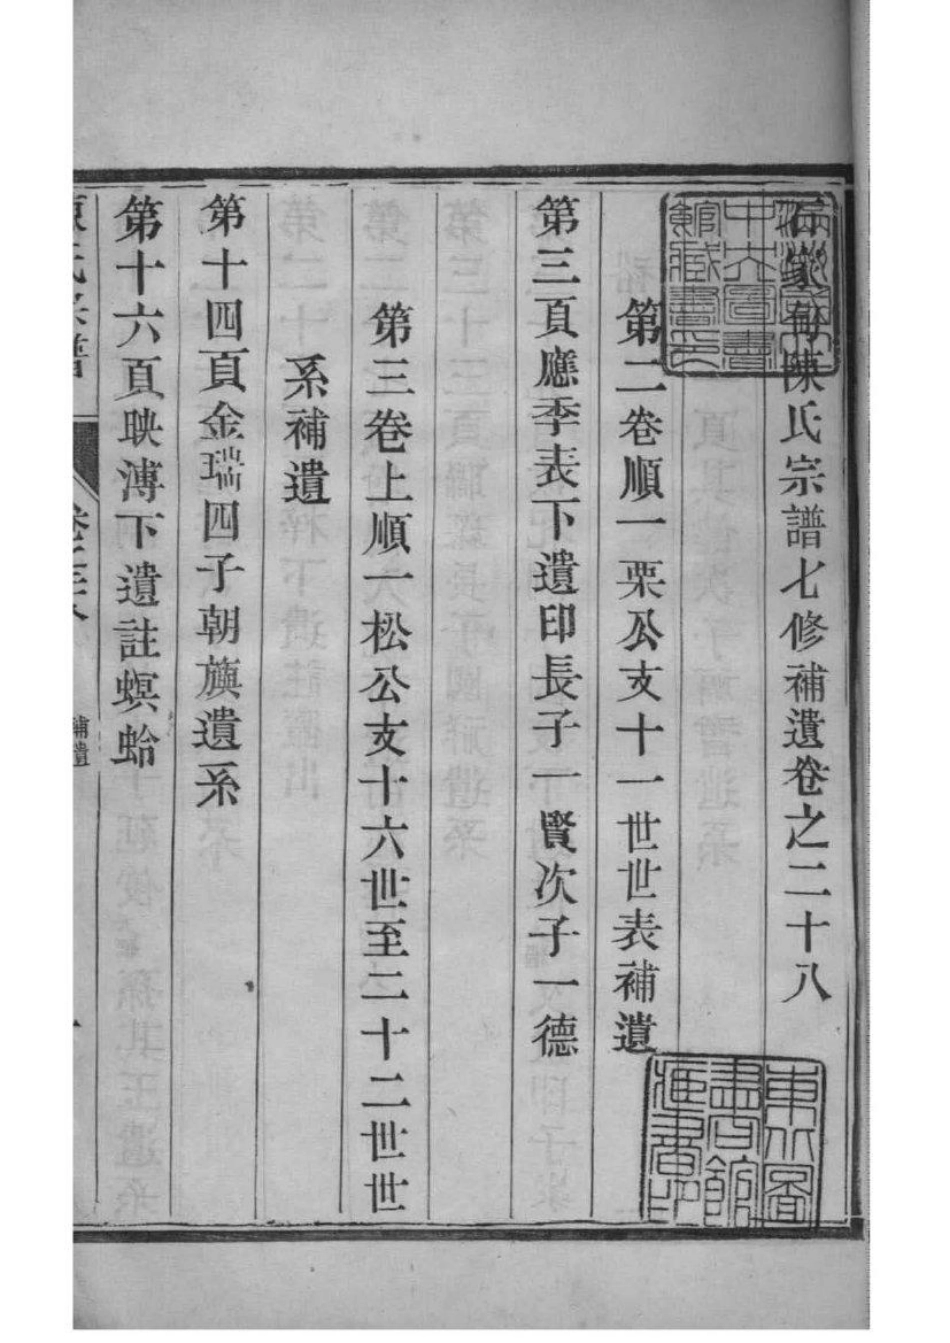 石家甸陳氏宗譜七修補遺卷之二十八
第二卷順一栗公支十一世世表補遺
第三頁應季表下遺印長子一賢次子一德
第三卷上順一松公支十六世至二十二世世
系補遺
第十四頁金瑞四子朝旟遺系
第十六頁映溥下遺註螟蛉
補遺